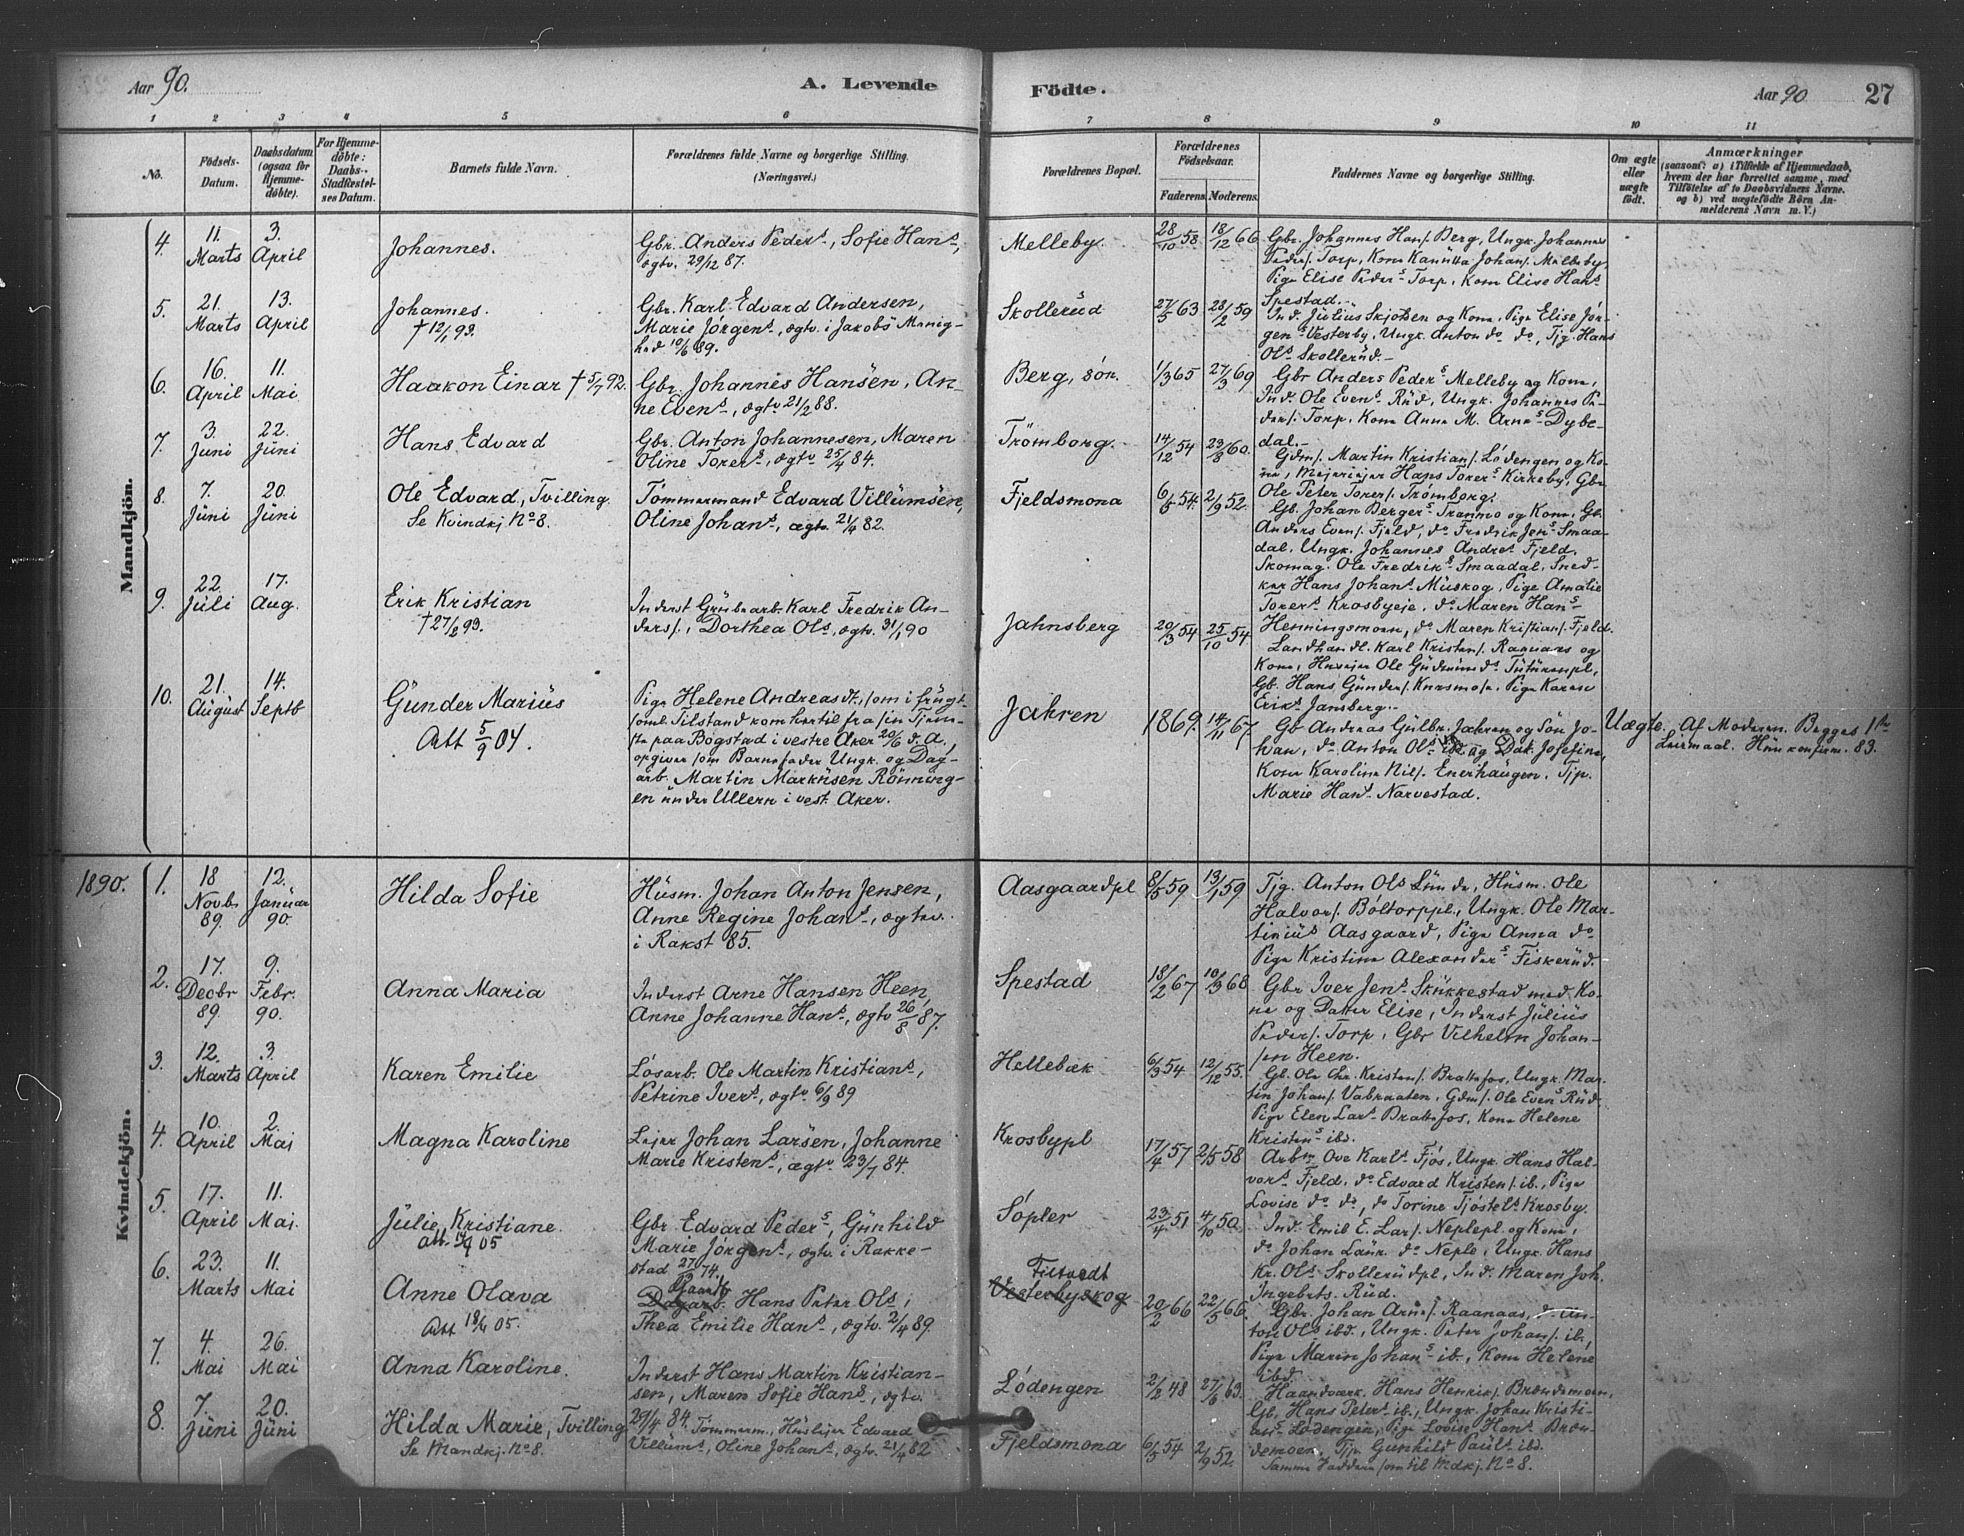 Aar 90.
A. Levende
Födte.
Aar 90
27
1 2 3 4 5 6 7 8 9 10 11
No.
Födsels-Datum.
Daabsdatum (ogsaa for Hjemmedöbte).
For Hjemmedöbte: Daabs-Stadfæstelses Datum.
Barnets fulde Navn.
Forældrenes fulde Navne og borgerlige Stilling.
(Næringsvei.)
Forældrenes Bopæl.
Forældrenes Födselsaar.
Faderens. Moderens.
Faddernes Navne og borgerlige Stilling.
Om ægte eller uægte født.
Anmærkninger
(saasom: a) i Tilfælde af Hjemmedaab, hvem der har forrettet samme, med Tilföielse af to Daabsvidners Navne. og b) ved uægtefödte Börn Anmelderens Navn m. V.)
Mandkjön.
4. 11. Marts 3. April
Johannes.
Gbr. Anders Peders, Sofie Hans,
ægtv. 29/12 87.
Melleby. 28/10 58. 18/12 66
Gbr. Johannes Hans. Berg, Ungk. Johannes
Peders. Torp, Kona Johans. Melleby,
Pige Elise Peders Torp, Kona Elise Hans
Spestad.
5. 21. Marts 13. April
Johannes.
† 12/1 93.
Gbr. Karl Edvard Andersen,
Marie Jørgens, ægtv. i Jakobs Menighed 10/6 89.
Skollerüd 27/5 63 28/2 59
Ind. Jülius Skjolsen og Kona, Pige Elise Jörgens Vesterby, Ungk. Anton do do, Tjg. Hans
Ols Skollerüd.
6. 16. April 11. Mai
Haakon Einar † 5/7 92.
Gbr. Johannes Hansen, Anne Evens, ægtv 21/2 88.
Berg, søn. 1/3 65 27/3 69
Gbr Anders Peders Melleby og Kona,
Ind. Ole Evens Rüd, Ungk. Johannes Peders. Torp, Kona Anna M. Arnes Dybedal.
7. 3. Juni 22. Juni
Hans Edvard
Gbr. Anton Johannesen, Maren
Oline Torers, ægtv 25/4 84.
Trömborg. 14/12 54 23/8 60.
Gdm. Martin Kristians. Lödengen og Kona, Meieriejer Hans Torers Kirkeby, Gbr
Ole Peter Torers. Trömborg.
8. 7. Jüni 20. Jüni
Ole Edvard, Tvilling.
Se Kvindkj No 8.
Tömmermand Edvard Villümsen,
Oline Johans, ægtv. 21/4 82.
Fjeldsmona 6/5 54. 2/9 52.
Gb. Johan Bergers Tranmo og Kona, Gb.
Anders Evens. Fjeld, do Fredrik Jens Smaadal, Ungk. Johannes Andres Fjeld.
Skomag. Ole Fredriks Smaadal, Snedker Hans Johans Müskog, Pige Amalie
Torers Krosbyeje, do Maren Hans
Henningsmoen, do Maren Kristians. Fjeld.
9. 22. Jüli 17. Aug.
Erik Kristian
† 27/2 93.
Inderst Grübearb. Karl Fredrik Anders., Dorthea Ols, ægtv. 31/1 90
Jahnsberg 20/3 54 25/10 54
Landhandl. Karl Kristens. Raanaas og
Kona, Hüsejer Ole Güdmünds
Gb. Hans Günders. Pige Karen
Eriks Jansberg.
10. 21. Aügust 14. Septb
Günder Mariüs
Att 5/9 04.
Pige Helene Andreasdt., som i früg
soml. Tilstand kom hertil fra sin Tjeneste paa Bogstad i vestre Aker 20/6 d. A,
opgiver som Barnefader Ungk. og Dagarb. Martin Markusen Rönningen ünder Ullern i vest. Aker.
Jahren 1869. 14/11 67.
Gb Andreas Gülbr. Jahren og Søn Johan, do Anton Ols og Dat. Josefine,
Kona Karolina Nils. Enerhaügen. Tjp.
Marie Hans Narvestad.
Uægte. Af Moderen. Begges 1ste
Leiermaal. Hün konfirm. 83.
Kvindekjön.
1890.
1. 18 Novb. 89. 12. Janüar 90.
Hilda Sofie
Hüsm. Johan Anton Jensen,
Anne Regine Johans, ægtv.
i Rakst 85.
Aasgaardpl 8/5 59 13/1 59
Tjg. Anton Ols Lünde, Hüsm. Ole
Halvors. Böltorppl., Ungk. Ole Martiniüs Aasgaard, Pige Anna do
Pige Kristine Alexanders Fiskerüd.
2. 17. Decbr 89. 9. Febr. 90.
Anna Maria
Inderst Arne Hansen Heen,
Anne Johanne Hans, ægtv 26/8 87.
Spestad 18/2 67 10/3 68
Gbr Iver Jens Skükkestad med Kone og Datter Elise, Inderst Jülius
Peders. Torp, Gbr Vilhelm Johansen Heen.
3. 12. Marts 3. April
Karen Emilie
Lösarb. Ole Martin Kristians,
Petrine Ivers, ægtv 6/9 89
Hellebæk 6/3 54 12/12 55.
Gb. Ole Chr. Kristens. Brattefos, Ungk. Martin Johans. Vabraaten, Gdm. Ole Evens Rüd
Pige Elen Lars Brattefos, Kona Helene
Kristens ibd.
4. 10. April 2. Mai
Magna Karoline
Lejer Johan Larsen, Johanne
Marie Kristens, ægtv 23/7 84.
Krosbypl 17/4 57 2/5 58
Arbm Ove Karls Fjös, Ungk. Hans Halvors Fjeld, do Edvard Kristens. ib., Pige
Lovise do do, do Torine Tjöstels Krosby.
5. 17. April 11. Mai.
Jülie Kristiane.
Att 05
Gbr. Edvard Peders, Günhild
Marie Jørgens, ægtv. i Rakkestad 27/ 74.
Sopler 23/4 51 4/10 50.
Ind. Emil E. Lars. Neplepl og Kona,
do Johan Laür. do Neple, Ungk. Hans
Kr. Ols Skollerüdpl, Ind. Maren Joh.
Ingebrts. Rüd.
6. 23. Marts 11. Mai
Anne Olava
Att 05.
Dagarb. Hans Peter Ols,
Thea Emilie Hans, ægtv. 2/4 89.
Tiltvedt
Vesterbyskog 20/2 66 22/5 66.
Gbr. Johan Arnes. Raanaas, do Anton Ols ibd., Ungk. Peter Johans. ib,
Pige Maren Johans ib., Kona Helene
ibd.
7. 4. Mai 26. Mai
Anna Karoline.
Inderst Hans Martin Kristiansen, Maren Sofie Hans, ægtv.
29/4 84.
Lödengen 2/2 48 27/6 63.
Haandværk. Hans Henriks. Brændemoen,
Gb. Hans Peters ib., Ungk. Johan Kristians Lødengen, Pige Lovise Hans Brændemoen, Tjp. Gunhild Paüls ibd.
8. 7. Jüni 20. Jüni
Hilda Marie, Tvilling
Se Mandkj. No 8.
Tømmerm. Hüslejer Edvard
Villüms, Oline Johans, ægtv. 21/4 82
Fjeldsmona 6/5 54 2/9 52.
Samme Faddere som til Mdkj. No 8.